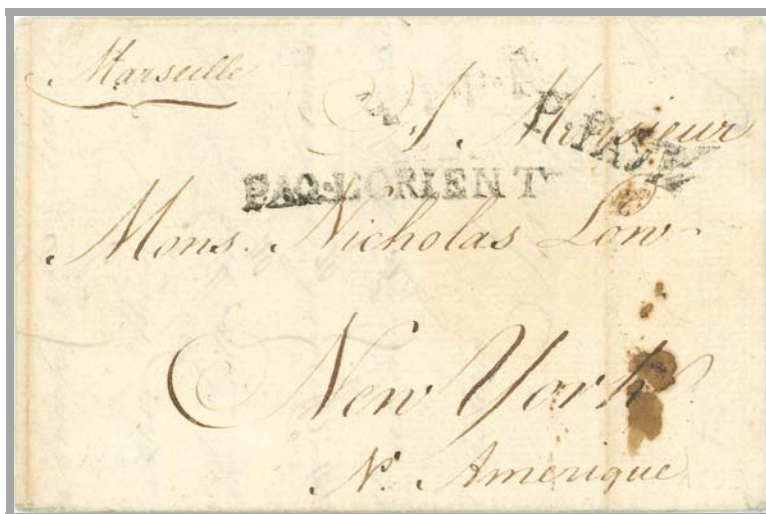 Marseille
A Monsieur
P. PAYÉ
PAQ. L'ORIENT
Mons. Nicholas Low
New York
No. Amerique